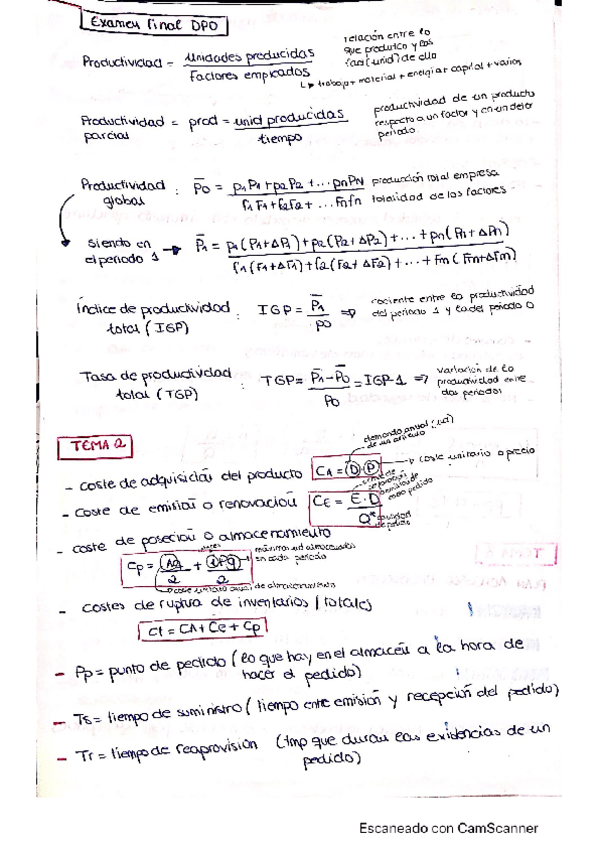 Examen final DPO
Productividad = Unidades producidas / Factores empleados
relación entre lo
que produzco y los
fac (unid) de ello
↳ trabajo + material + energia + capital + varios
Productividad parcial = prod = unid producidas / tiempo
productividad de un producto
respecto a un factor y en un deter
periodo
Productividad global : P̄0 = p1P1 + p2P2 + ... pnPN / f1F1 + f2F2 + ... Fnfn
producción total empresa
totalidad de los factores
Siendo en el periodo 1 → P̄1 = p1(P1+ΔP1) + p2(P2+ΔP2) + ... + pn(Pn+ΔPn) / f1(F1+ΔF1) + f2(F2+ΔF2) + ... + Fm(Fm+ΔFm)
Índice de productividad total (IGP) : IGP = P̄1 / p0 ⇒ cociente entre la productividad
del periodo 1 y la del periodo 0
Tasa de productividad total (TGP) : TGP = P̄1 - P̄0 / P0 = IGP-1 ⇒ variación de la
productividad entre
dos periodos
TEMA 2
demanda anual (ud)
de un artículo
- coste de adquisición del producto CA = D · P → coste unitario o precio
- coste de emisión o renovación CE = E · D / Q*
cantidad
de pedido
- coste de posesión o almacenamiento
máximas ud almacenadas
en cada periodo
Cp =
coste unitario anual de almacenamiento
- costes de ruptura de inventarios / totales
Ct = CA + Ce + Cp
- Pp = punto de pedido (lo que hay en el almacén a la hora de
hacer el pedido)
- Ts = tiempo de suministro (tiempo entre emisión y recepción del pedido)
- Tr = tiempo de reaprovisión (tmp que duran las existencias de un
pedido)
Escaneado con CamScanner